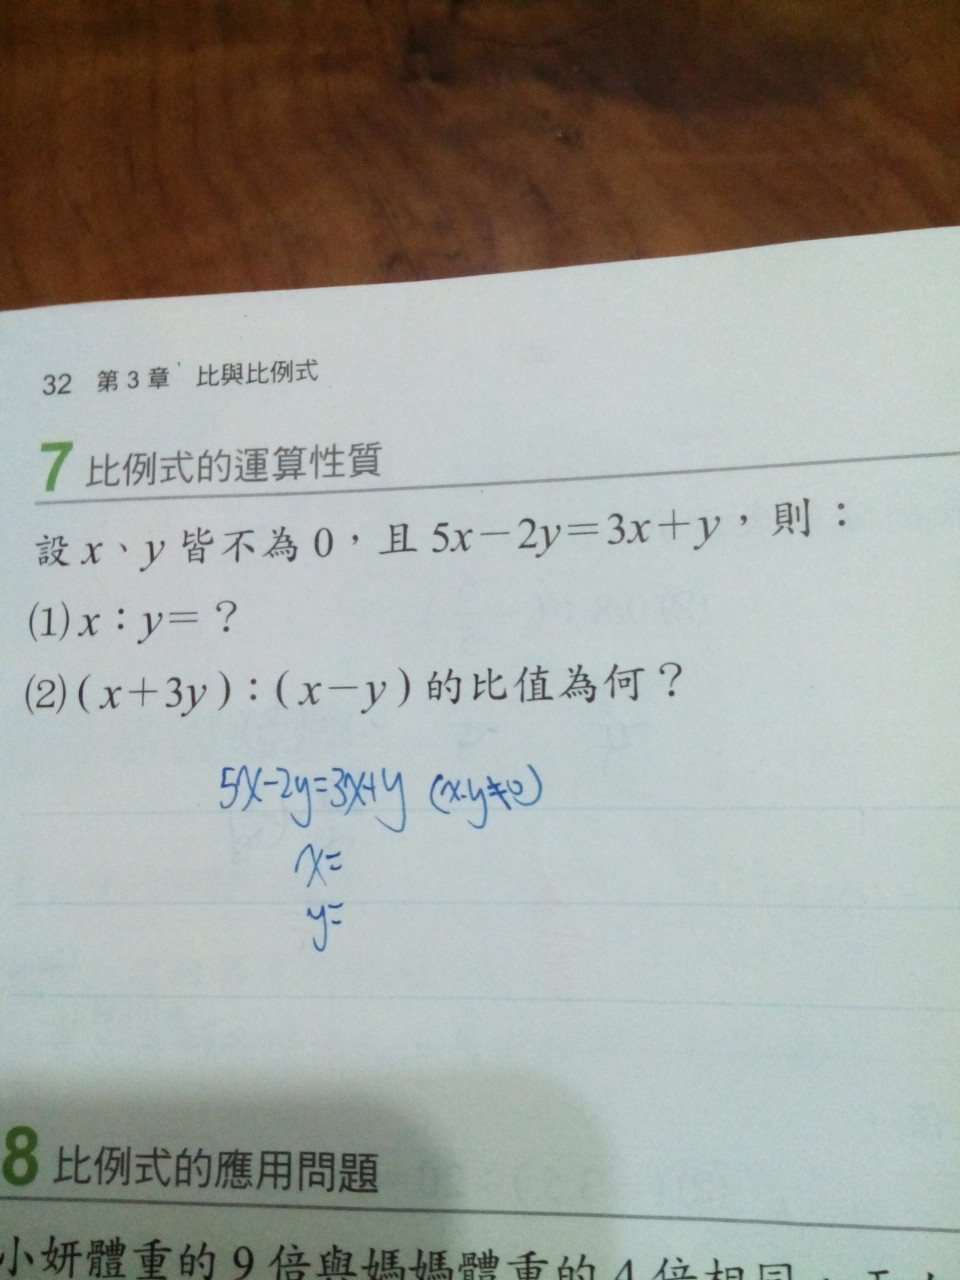 32 第3章 比與比例式
7 比例式的運算性質
設 x、y 皆不為 0，且 5x－2y＝3x＋y，則：
(1) x：y＝？
(2) ( x＋3y )：( x－y ) 的比值為何？
5x-2y=3x+y (x.y≠0)
x=
y=
8 比例式的應用問題
小妍體重的 9 倍與媽媽體重的 4 倍相同